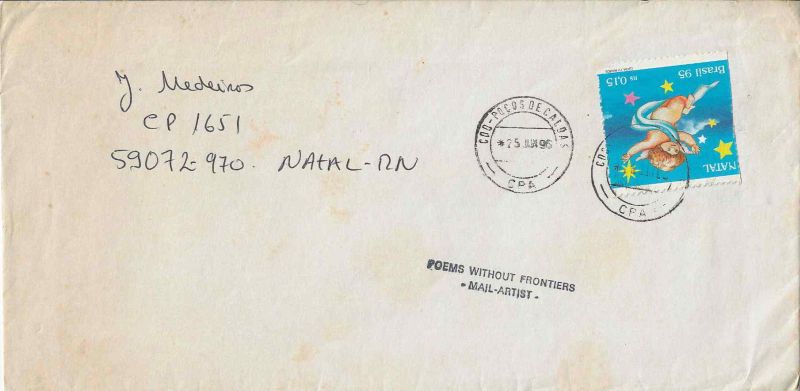 J. Medeiros
CP 1651
59072-970. NATAL-RN
CDD-POÇOS DE CALDAS
*25 JUN 96
CPA
Brasil 95
R$ 0,15
NATAL
CPA
POEMS WITHOUT FRONTIERS
- MAIL-ARTIST -